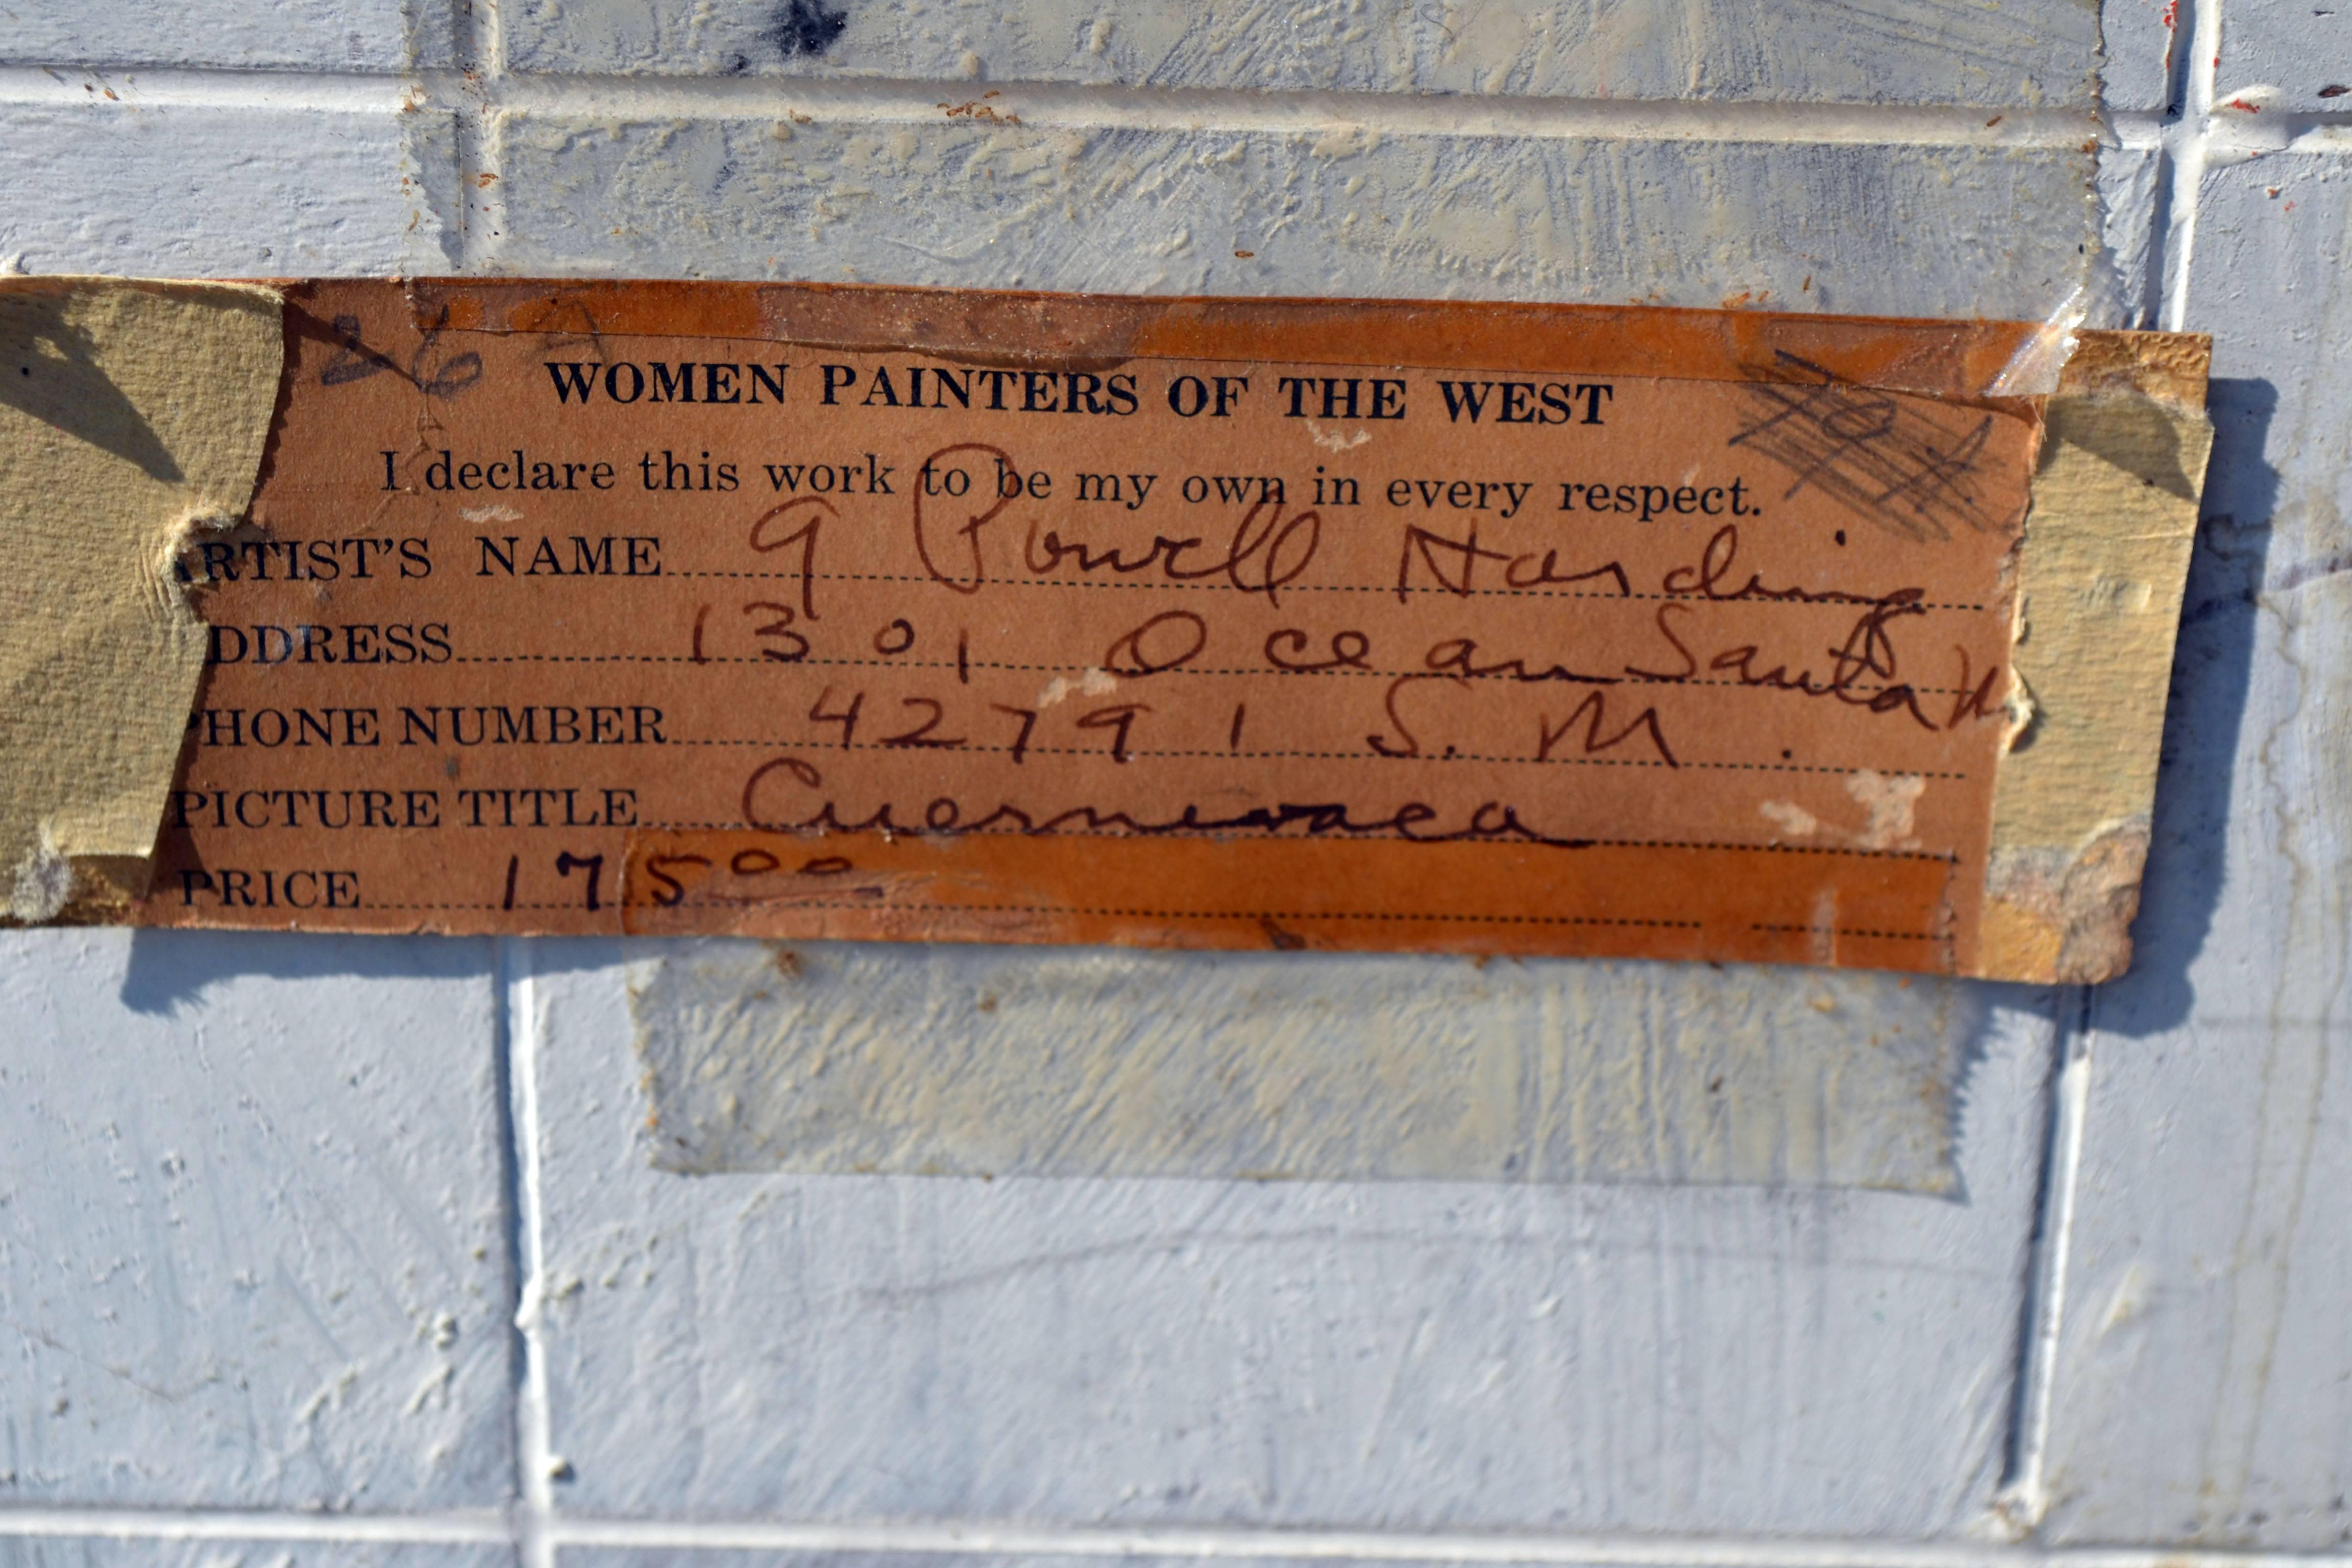 26
WOMEN PAINTERS OF THE WEST
I declare this work to be my own in every respect.
RTIST'S NAME G Powell Harding
DDRESS 1301 Ocean Santa M
PHONE NUMBER 42791 S. M.
PICTURE TITLE Cuernevaca
PRICE 175 00